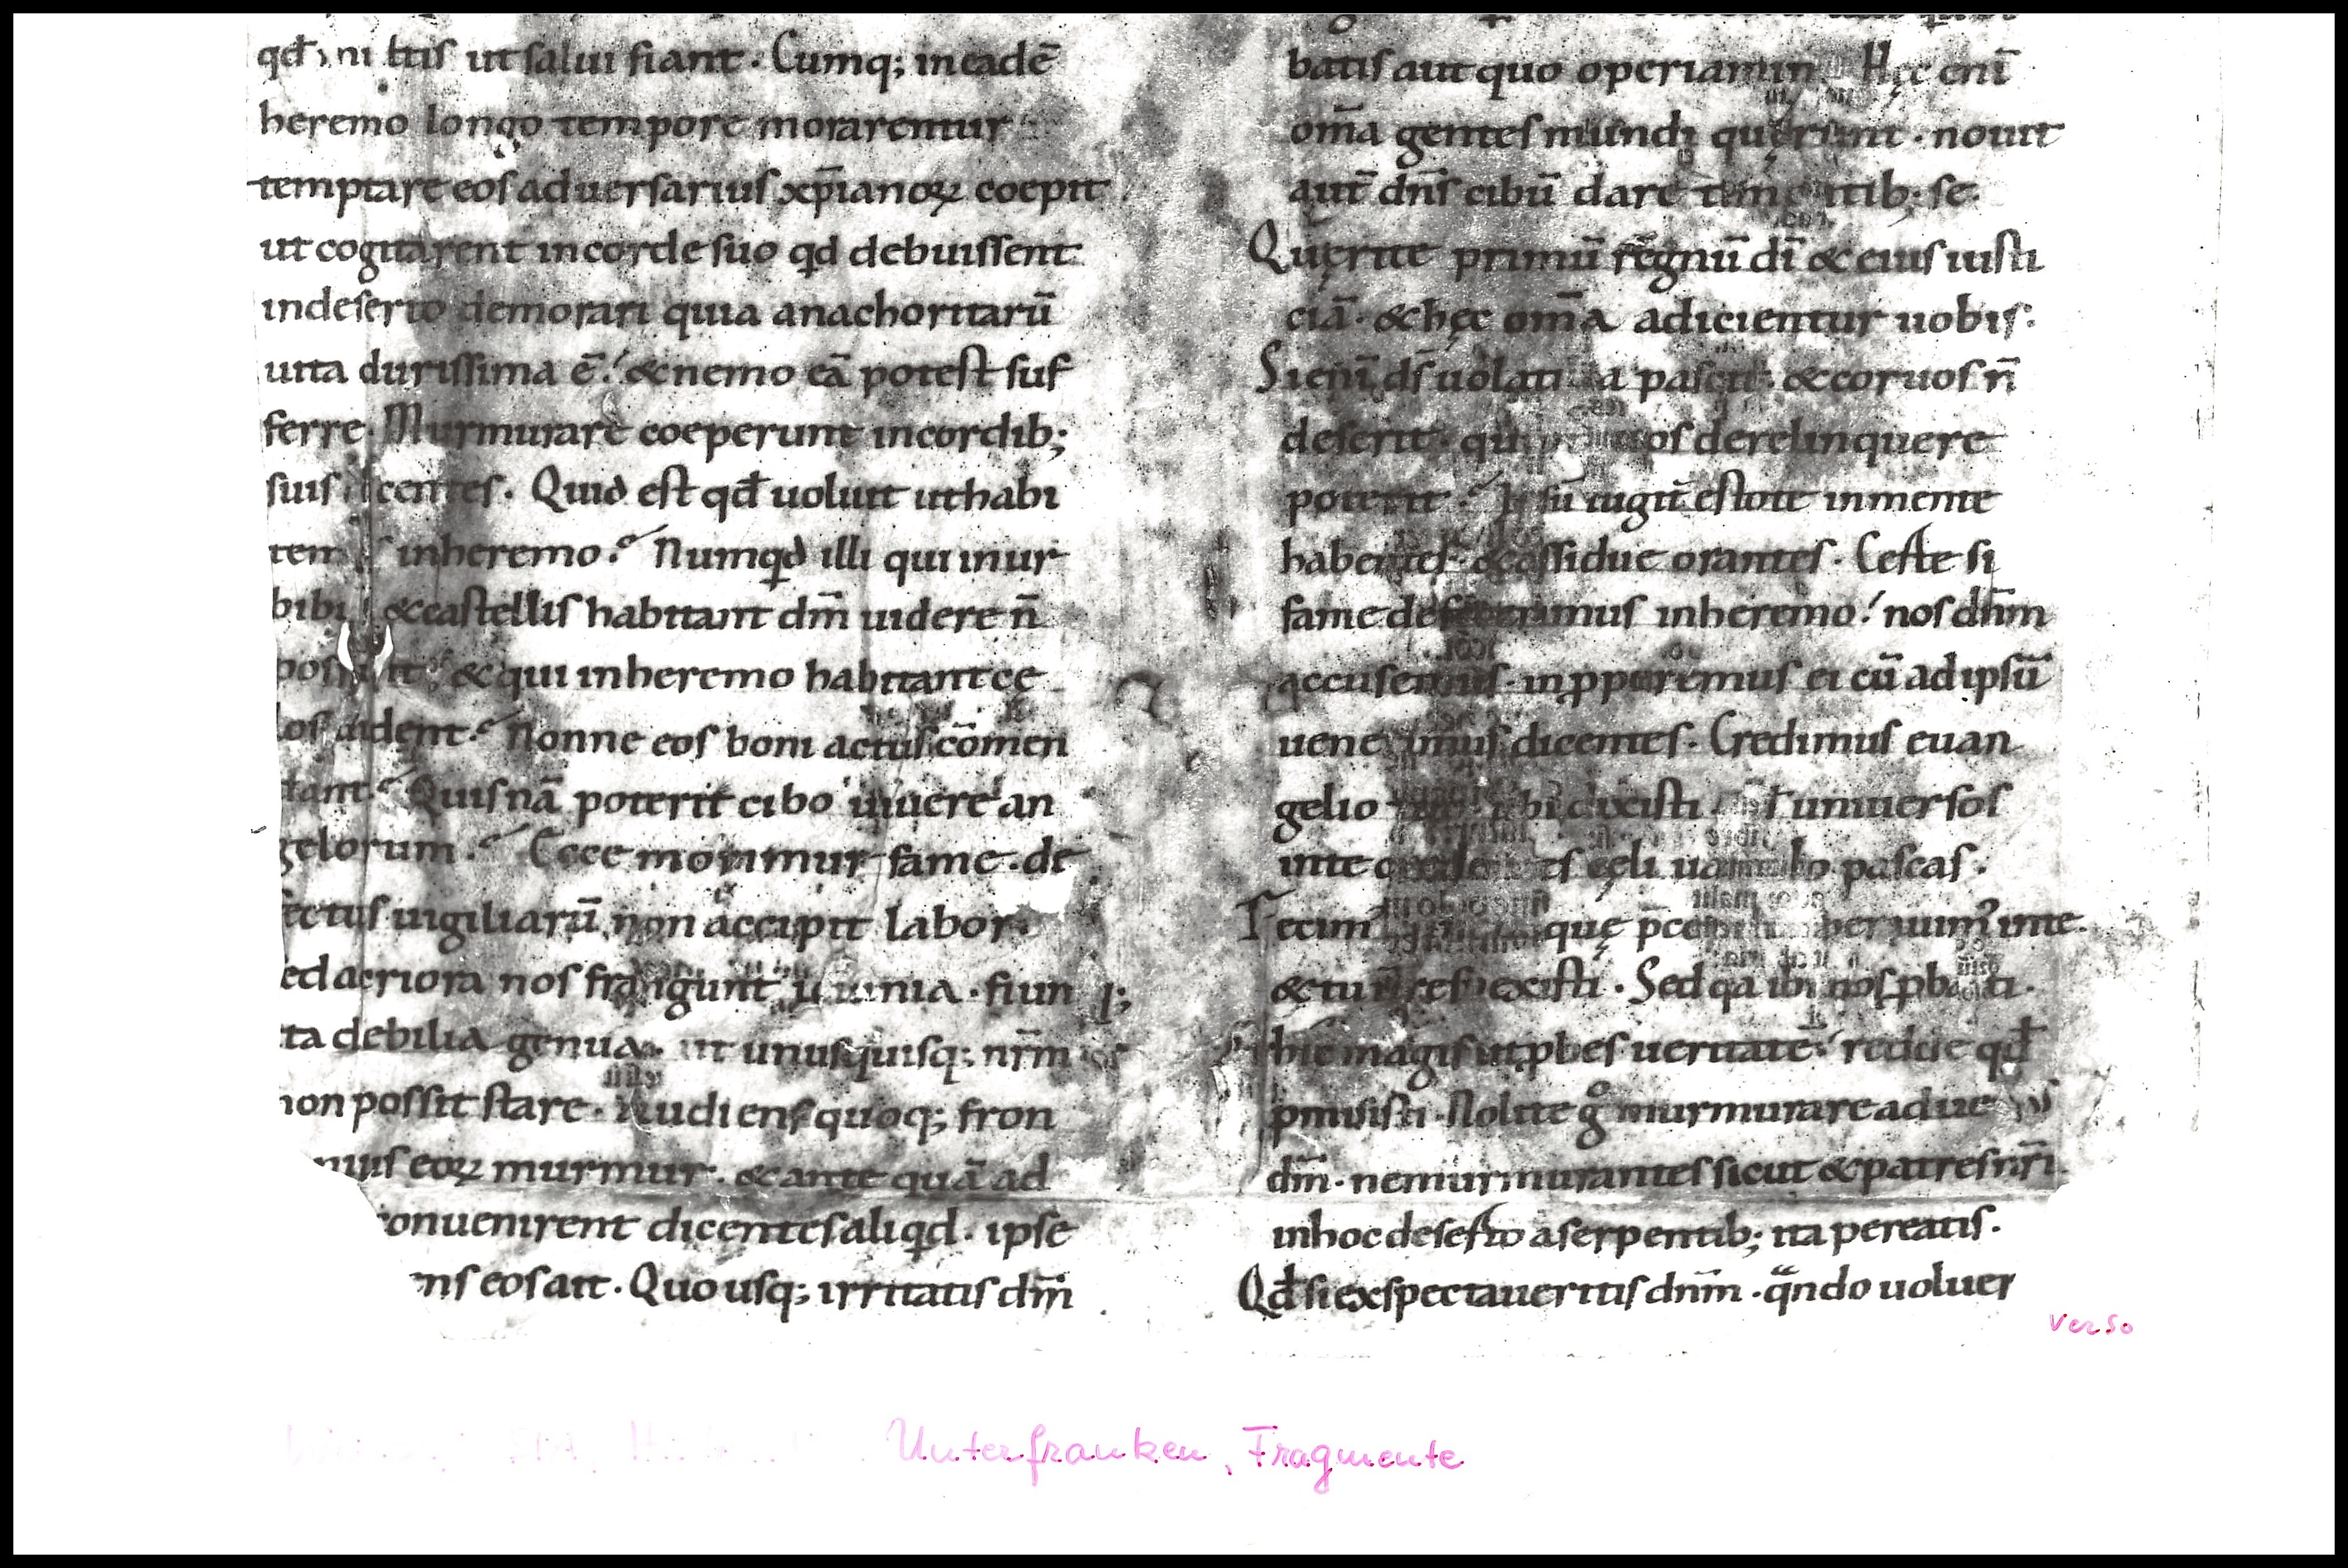 ut salui fiant. Cumq; in eadē
heremo longo tempore morarentur
temptare eos aduersarius xp̄ianoꝝ coepit
ut cogitarent in corde suo qd debuissent
in deserto demorari quia anachoritarū
uita durissima ē. & nemo eā potest suf
ferre. Murmurare coeperunt in cordib;
suis centes. Quid est qđ uoluit ut habi
tem inheremo? Numqd illi qui in ur
bibus & castellis habitant dm̄ uidere n̄
& qui inheremo habitant cę
los uident? Nonne eos boni actus cōmen
tant? Quis nā poterit cibo uiuere an
gelorum? Ecce morimur fame. de
fectus uigiliarū non accipit labor.
ed acriora nos frangunt fiun
ta debilia genua. ut unusquisq; nr̄m
non possit stare. Audiens quoq; fron
eoꝝ murmur. & ante quā ad
conuenirent dicentes aliqd. ipse
ns eos ait. Quo usq; irritatis dm̄
batis aut quo operiamin Hęc eni
om̄a gentes mundi quęrunt. nouit
aut̄ dn̄s cibū dare timentib; se.
Quęrite primū regnū dī & eius iusti
ciā. & hęc om̄a adicientur uobis.
Si enī ds̄ uolatilia pascit. & coruos n̄
deserit. os derelinquere
poterit? estote in mente
habentes. & assidue orantes. Certe si
fame defecerimus inheremo? nos dn̄m
accusemus. inꝓperemus ei cū ad ipsū
uenerimus dicentes. Credimus euan
gelio dixisti uniuersos
inte cęli pascas.
Fecim quę inte.
& tu Sed qa ibi nos
hic magis ut ꝓbes ueritatē. redde qđ
pmisisti. Nolite gͦ murmurare adue
dm̄. ne murmurantes sicut & patres nr̄i
in hoc deserto a serpentib; ita pereatis.
Qđ si exspectaueritis dn̄m. qͣndo uoluer
verso
Unterfranken, Fragmente